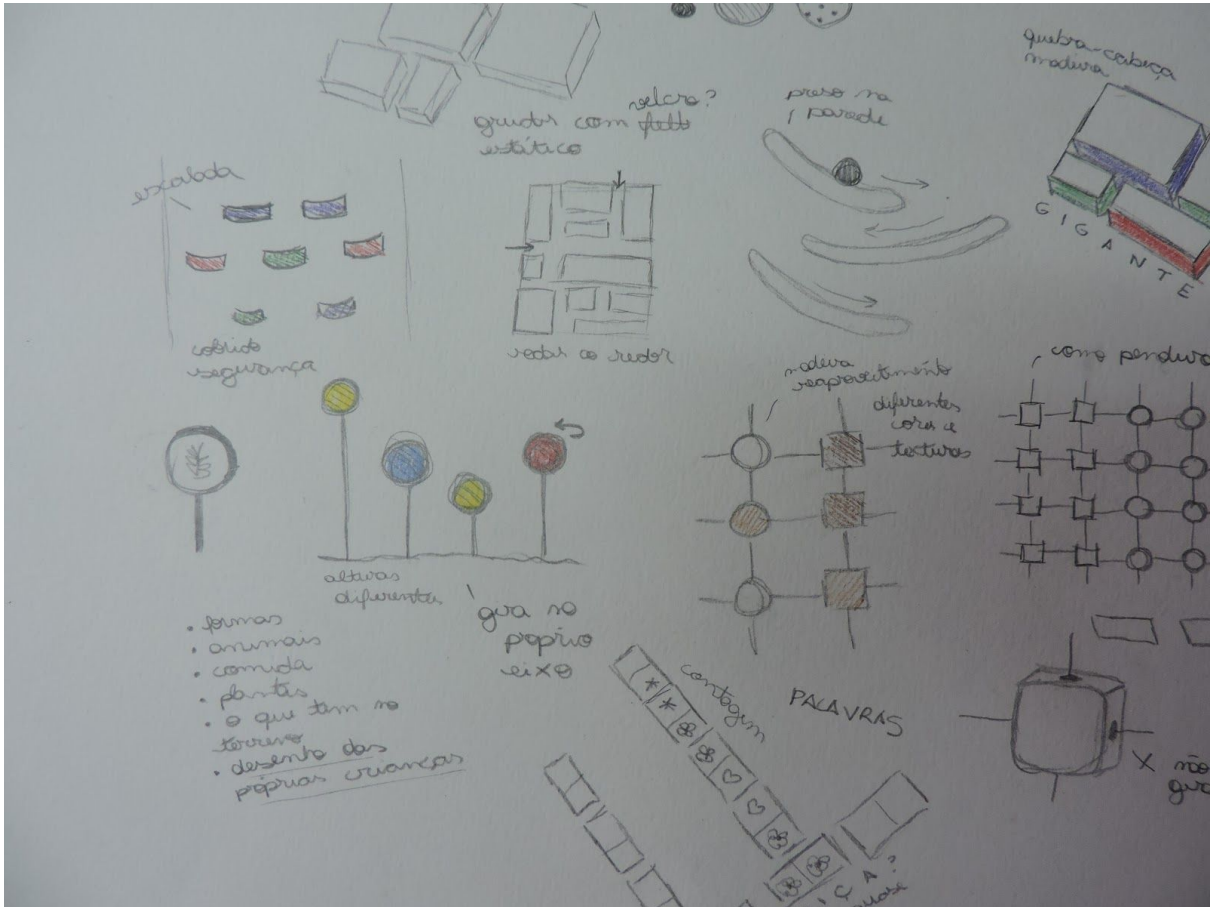 quebra-cabeça
madeira
GIGANTE
velcro?
grudar com
estático
preso na
parede
escalada
colorido
segurança
rodar ao redor
madeira
reaproveitamento
diferentes
cores e
texturas
como pendura
alturas
diferentes
gira no
próprio
eixo
• formas
• animais
• comida
• plantas
• o que tem no
terreno
• desenho das
próprias crianças
contagem
PALAVRAS
X não
gira